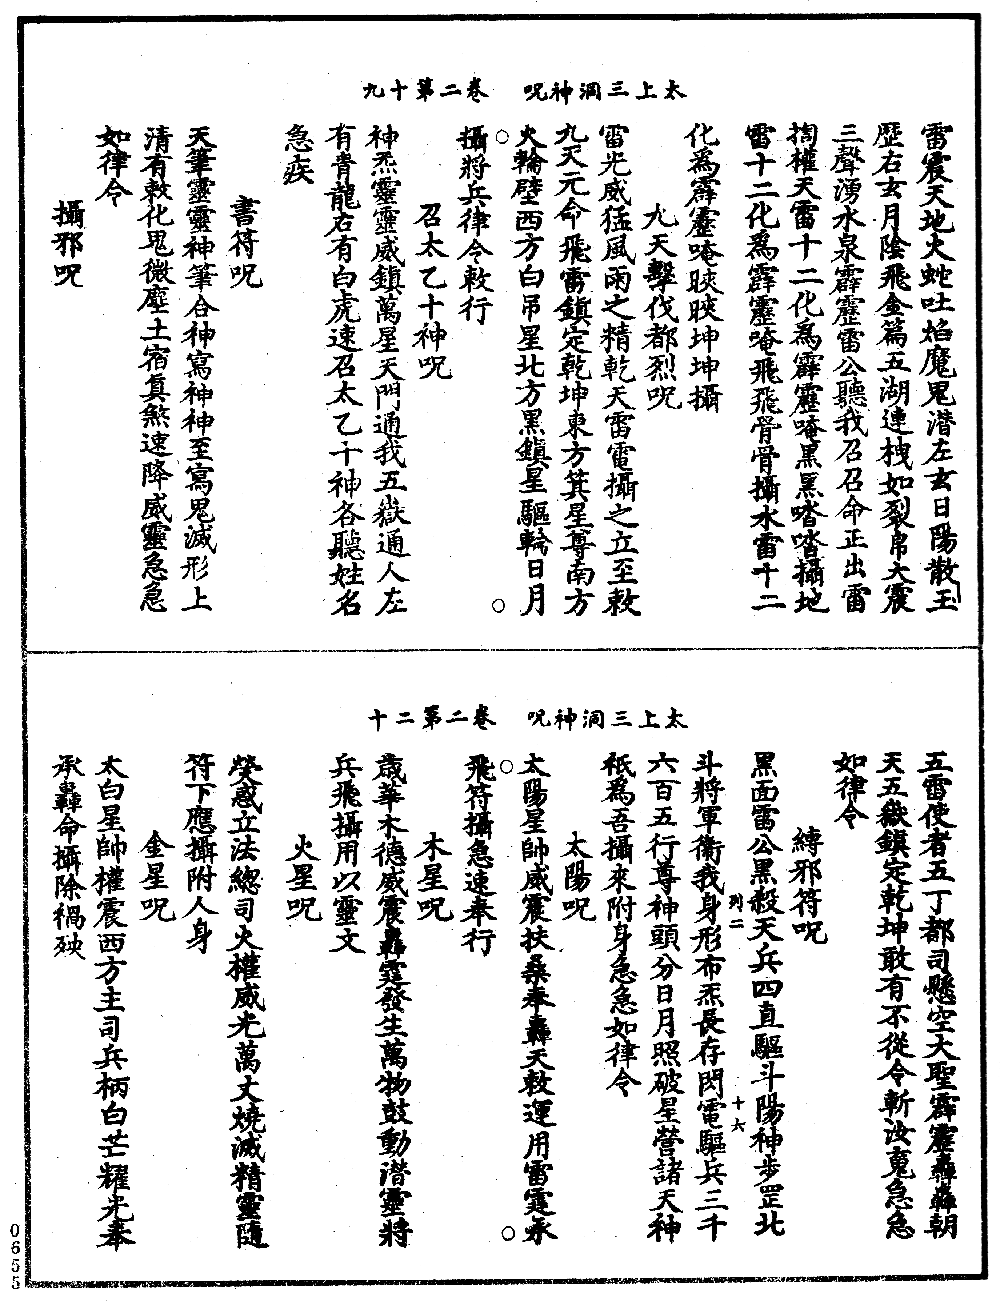 太上三洞神呪　卷二第十九
雷震天地火蛇吐焰魔鬼潛左玄日陽散玉
歷右玄月陰飛金篇五湖連拽如裂帛大震
三聲湧水泉霹靂雷公聽我召召命正出雷
搊權天雷十二化爲霹靂唵黑黑喀喀攝地
雷十二化爲霹靂唵飛飛骨骨攝水雷十二
化爲霹靂唵䀹䀹坤坤攝
九天擊伐都烈呪
雷光威猛風雨之精乾天雷雷攝之立至敕
九天元命飛雷鎮定乾坤東方箕星尊南方
火輪壁西方白吊星北方黑鎖星驅輪日月
攝將兵律令敕行
召太乙十神呪
神炁靈靈威鎮萬星天門通我五嶽通人左
有青龍右有白虎速召太乙十神各聽姓名
急疾
書符呪
天筆靈靈神筆合神寫神神至寫鬼滅形上
清有敕化鬼微塵土宿真煞速降威靈急急
如律令
攝邪呪
太上三洞神呪　卷二第二十
五雷使者五丁都司懸空大聖霹靂轟轟朝
天五嶽鎮定乾坤敢有不從令斬汝䰟急急
如律令
縛邪符呪
黑面雷公黑殺天兵四直驅斗陽神步罡北
列二
十六
斗將軍衛我身形布炁長存閃電驅兵三千
六百五行尊神頭分日月照破星營諸天神
祇爲吾攝來附身急急如律令
太陽呪
太陽星帥威震扶桑奉轟天敕運用雷霆承
飛符攝急速奉行
木星呪
歲華木德威震轟霆發生萬物鼓動潛靈將
兵飛攝用以靈文
火星呪
熒惑立法總司火權威光萬丈燒滅精靈隨
符下應攝附人身
金星呪
太白星帥權震西方主司兵柄白芒耀光奉
承轟命攝除禍殃
0655